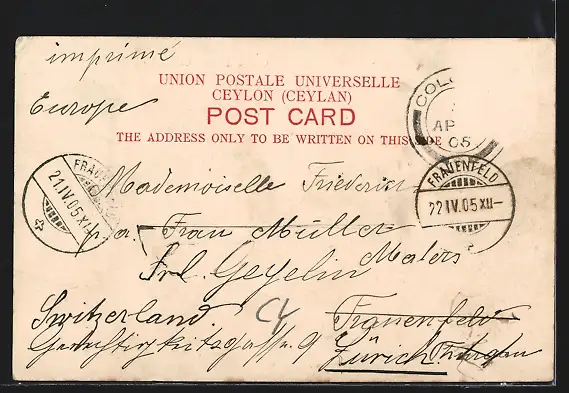 imprimé
UNION POSTALE UNIVERSELLE
CEYLON (CEYLAN)
Europe
POST CARD
THE ADDRESS ONLY TO BE WRITTEN ON THIS SIDE
COLO
AP
05
FRAUENFELD
21.IV.05.XII-
FRAUENFELD
22.IV.05.XII-
Mademoiselle Friederich
Frau Müller
Frl. Geyelin Malers
Switzerland Frauenfeld
Gerechtigkeitsgasse 9 Zürich Thurgau